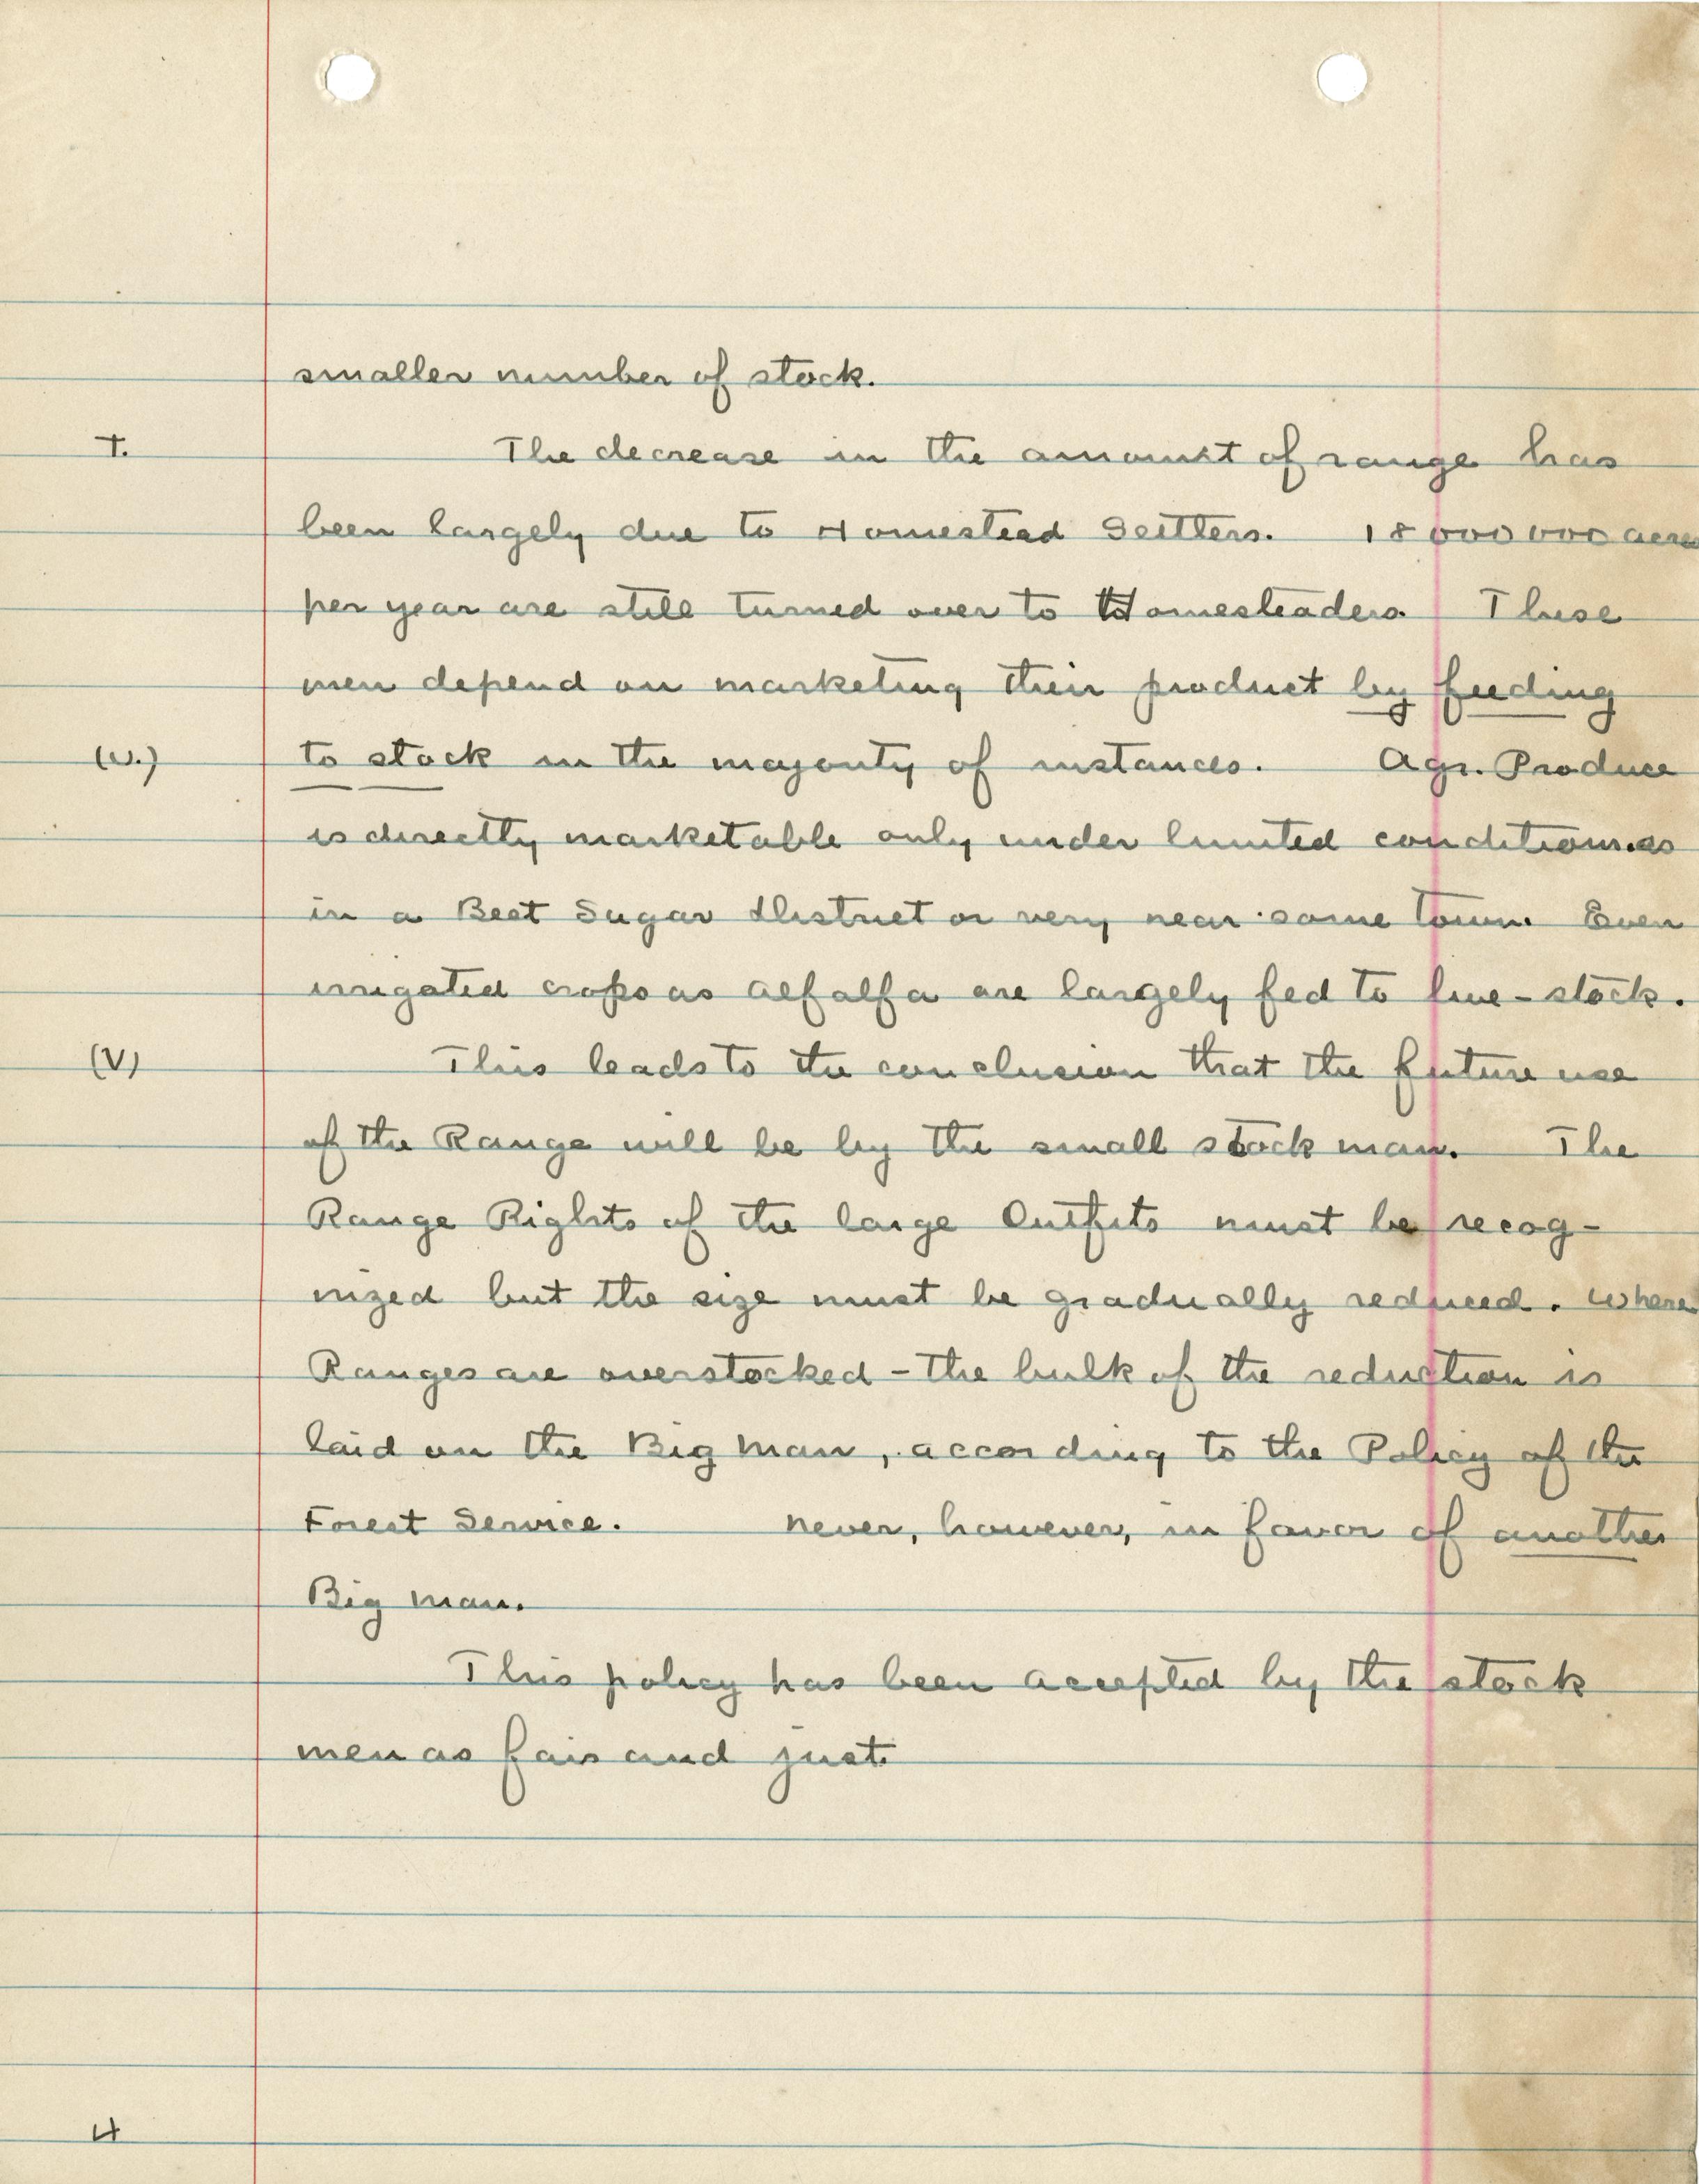 smaller number of stock.
T. The decrease in the amount of range has
been largely due to Homestead Settlers. 18 000 000 acres
per year are still turned over to Homesteaders. These
men depend on marketing their product by feeding
(U.) to stock in the majority of instances. Agr. Produce
is directly marketable only under limited conditions as
in a Beet Sugar District or very near some town. Even
irrigated crops as Alfalfa are largely fed to live-stock.
(V) This leads to the conclusion that the future use
of the Range will be by the small stock man. The
Range Rights of the large Outfits must be recog-
nized but the size must be gradually reduced. Where
Ranges are overstocked - the bulk of the reduction is
laid on the Big Man, according to the Policy of the
Forest Service. Never, however, in favor of another
Big man.
This policy has been accepted by the stock
men as fair and just.
4